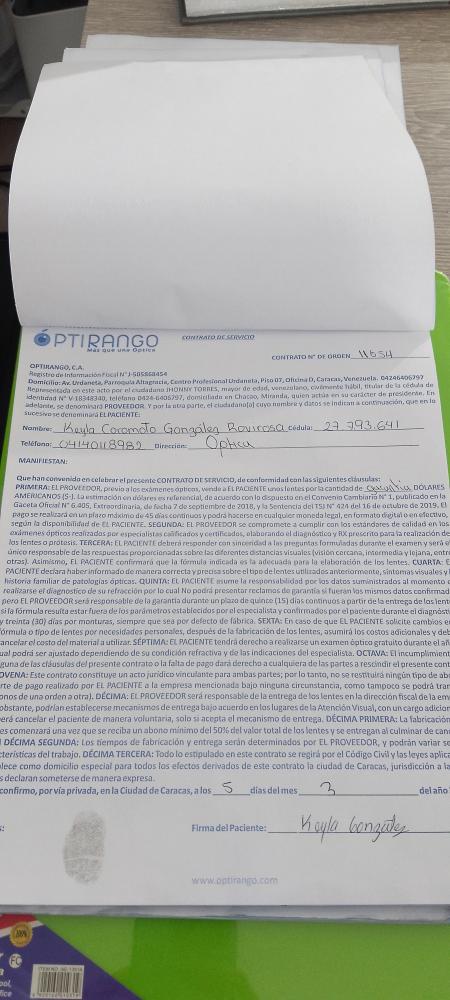 ÓPTIRANGO
Más que una Óptica
CONTRATO DE SERVICIO
CONTRATO N° DE ORDEN 11654
OPTIRANGO, C.A.
Registro de Información Fiscal N° J-505868454
Domicilio: Av. Urdaneta, Parroquia Altagracia, Centro Profesional Urdaneta, Piso 07, Oficina D, Caracas, Venezuela. 04246406797
Representada en este acto por el ciudadano JHONNY TORRES, mayor de edad, venezolano, civilmente hábil, titular de la cédula de
identidad N° V-18348340, teléfono 0424-6406797, domiciliado en Chacao, Miranda, quien actúa en su carácter de presidente. En
adelante, se denominará PROVEEDOR. Y por la otra parte, el ciudadano(a) cuyo nombre y datos se indican a continuación, que en lo
sucesivo se denominará EL PACIENTE:
Nombre: Keyla Coromoto González Rovirosa Cédula: 27.793.641
Teléfono: 04140118982 Dirección: Óptica
MANIFIESTAN:
Que han convenido en celebrar el presente CONTRATO DE SERVICIO, de conformidad con las siguientes cláusulas:
PRIMERA: EL PROVEEDOR, previo a los exámenes ópticos, vende a EL PACIENTE unos lentes por la cantidad de DÓLARES
AMERICANOS ($-). La estimación en dólares es referencial, de acuerdo con lo dispuesto en el Convenio Cambiario N° 1, publicado en la
Gaceta Oficial N° 6.405, Extraordinaria, de fecha 7 de septiembre de 2018, y la Sentencia del TSJ N° 424 del 16 de octubre de 2019. El
pago se realizará en un plazo máximo de 45 días continuos y podrá hacerse en cualquier moneda legal, en formato digital o en efectivo,
según la disponibilidad de EL PACIENTE. SEGUNDA: EL PROVEEDOR se compromete a cumplir con los estándares de calidad en los
exámenes ópticos realizados por especialistas calificados y certificados, elaborando el diagnóstico y RX prescrito para la realización de
los lentes o prótesis. TERCERA: EL PACIENTE deberá responder con sinceridad a las preguntas formuladas durante el examen y será e
único responsable de las respuestas proporcionadas sobre las diferentes distancias visuales (visión cercana, intermedia y lejana, entre
otras). Asimismo, EL PACIENTE confirmará que la fórmula indicada es la adecuada para la elaboración de los lentes. CUARTA: E
PACIENTE declara haber informado de manera correcta y precisa sobre el tipo de lentes utilizados anteriormente, síntomas visuales
historia familiar de patologías ópticas. QUINTA: EL PACIENTE asume la responsabilidad por los datos suministrados al momento
realizarse el diagnostico de su refracción por lo cual No podrá presentar reclamos de garantía si fueran los mismos datos confirmad
pero EL PROVEEDOR será responsable de la garantía durante un plazo de quince (15) días continuos a partir de la entrega de los lent
si la fórmula resulta estar fuera de los parámetros establecidos por el especialista y confirmados por el paciente durante el diagnóst
y treinta (30) días por monturas, siempre que sea por defecto de fábrica. SEXTA: En caso de que EL PACIENTE solicite cambios en
fórmula o tipo de lentes por necesidades personales, después de la fabricación de los lentes, asumirá los costos adicionales y deb
cancelar el costo del material a utilizar. SÉPTIMA: EL PACIENTE tendrá derecho a realizarse un examen óptico gratuito durante el añ
ual podrá ser ajustado dependiendo de su condición refractiva y de las indicaciones del especialista. OCTAVA: El incumplimient
guna de las cláusulas del presente contrato o la falta de pago dará derecho a cualquiera de las partes a rescindir el presente cont
OVENA: Este contrato constituye un acto jurídico vinculante para ambas partes; por lo tanto, no se restituirá ningún tipo de ab
rte de pago realizado por EL PACIENTE a la empresa mencionada bajo ninguna circunstancia, como tampoco se podrá tran
onos de una orden a otra). DÉCIMA: EL PROVEEDOR será responsable de la entrega de los lentes en la dirección fiscal de la en
obstante, podrían establecerse mecanismos de entrega bajo acuerdo en los lugares de la Atención Visual, con un cargo adicion
erá cancelar el paciente de manera voluntaria, solo si acepta el mecanismo de entrega. DÉCIMA PRIMERA: La fabricación
es comenzará una vez que se reciba un abono mínimo del 50% del valor total de los lentes y se entregan al culminar de can
DÉCIMA SEGUNDA: Los tiempos de fabricación y entrega serán determinados por EL PROVEEDOR, y podrán variar se
cterísticas del trabajo. DÉCIMA TERCERA: Todo lo estipulado en este contrato se regirá por el Código Civil y las leyes aplica
lece como domicilio especial para todos los efectos derivados de este contrato la ciudad de Caracas, jurisdicción a la
s declaran someterse de manera expresa.
confirmo, por vía privada, en la Ciudad de Caracas, a los 5 días del mes 3 del año
Firma del Paciente: Keyla González
www.optirango.com
100%
FC
ITEM NO. AG-1301A
ool,
fice